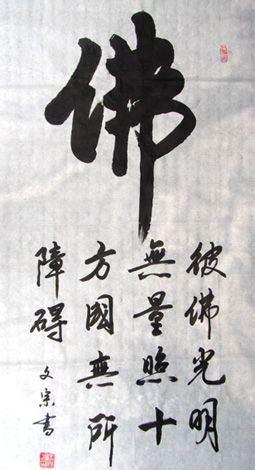 佛
彼佛光明
無量照十
方國無所
障碍
文宗書